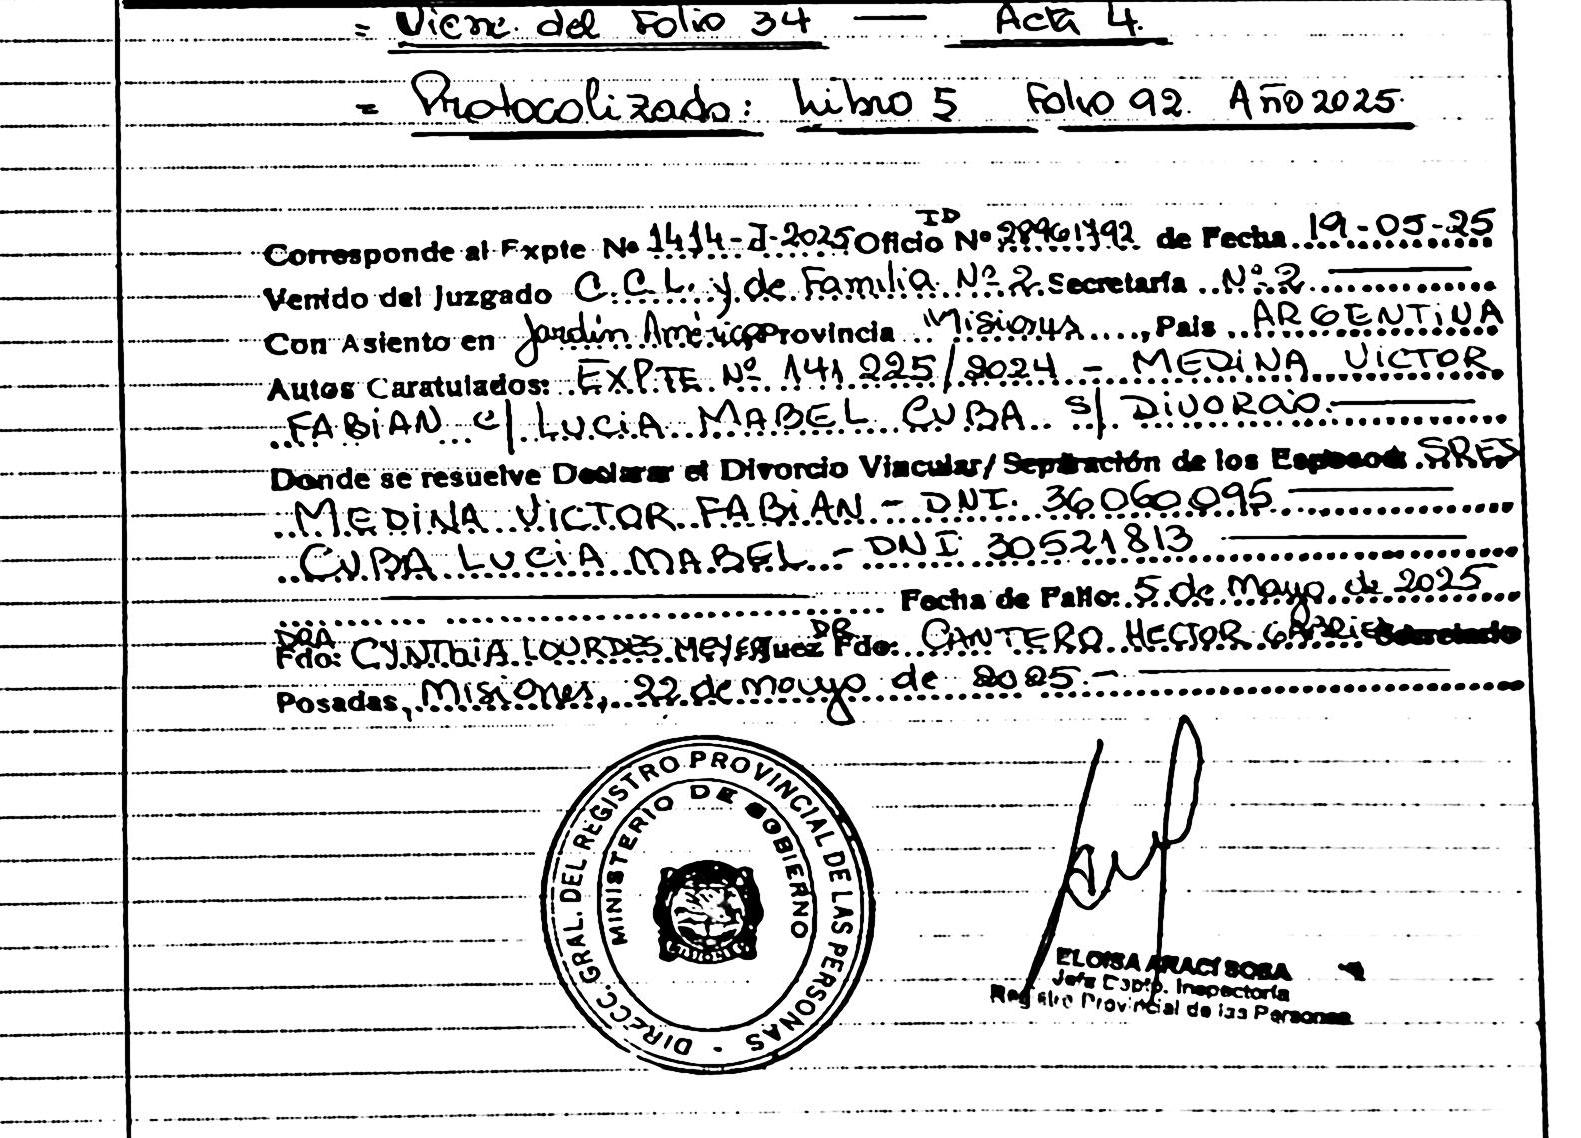 = Viene del Folio 34 — Acta 4.
= Protocolizado: Libro 5 Folio 92. Año 2025.
ID
Corresponde al Expte Nº 1414-J-2025 Oficio Nº 28961792 de Fecha 19-05-25
Venido del Juzgado C.C.L. y de Familia Nº 2. Secretaría Nº 2.
Con Asiento en Jardín América, Provincia Misiones, País ARGENTINA
Autos Caratulados: EXPTE Nº 141 225/2024 - MEDINA VICTOR
FABIAN c/ LUCIA MABEL CUBA s/ DIVORCIO.
Donde se resuelve Declarar el Divorcio Vincular/ Separación de los Esposos SRES
MEDINA VICTOR FABIAN - DNI. 36060.095
CUBA LUCIA MABEL - DNI 30521813
Fecha de Fallo: 5 de Mayo de 2025
DRA DR
Fdo: CYNTHIA LOURDES MEYER Juez Fdo: CANTERO HECTOR GABRIEL Secretario
Posadas, Misiones, 22 de mayo de 2025.-
DIRECC. GRAL. DEL REGISTRO PROVINCIAL DE LAS PERSONAS -
MINISTERIO DE GOBIERNO
MISIONES
ELOISA ARACI SOSA
Jefa Dpto. Inspectoría
Registro Provincial de las Personas